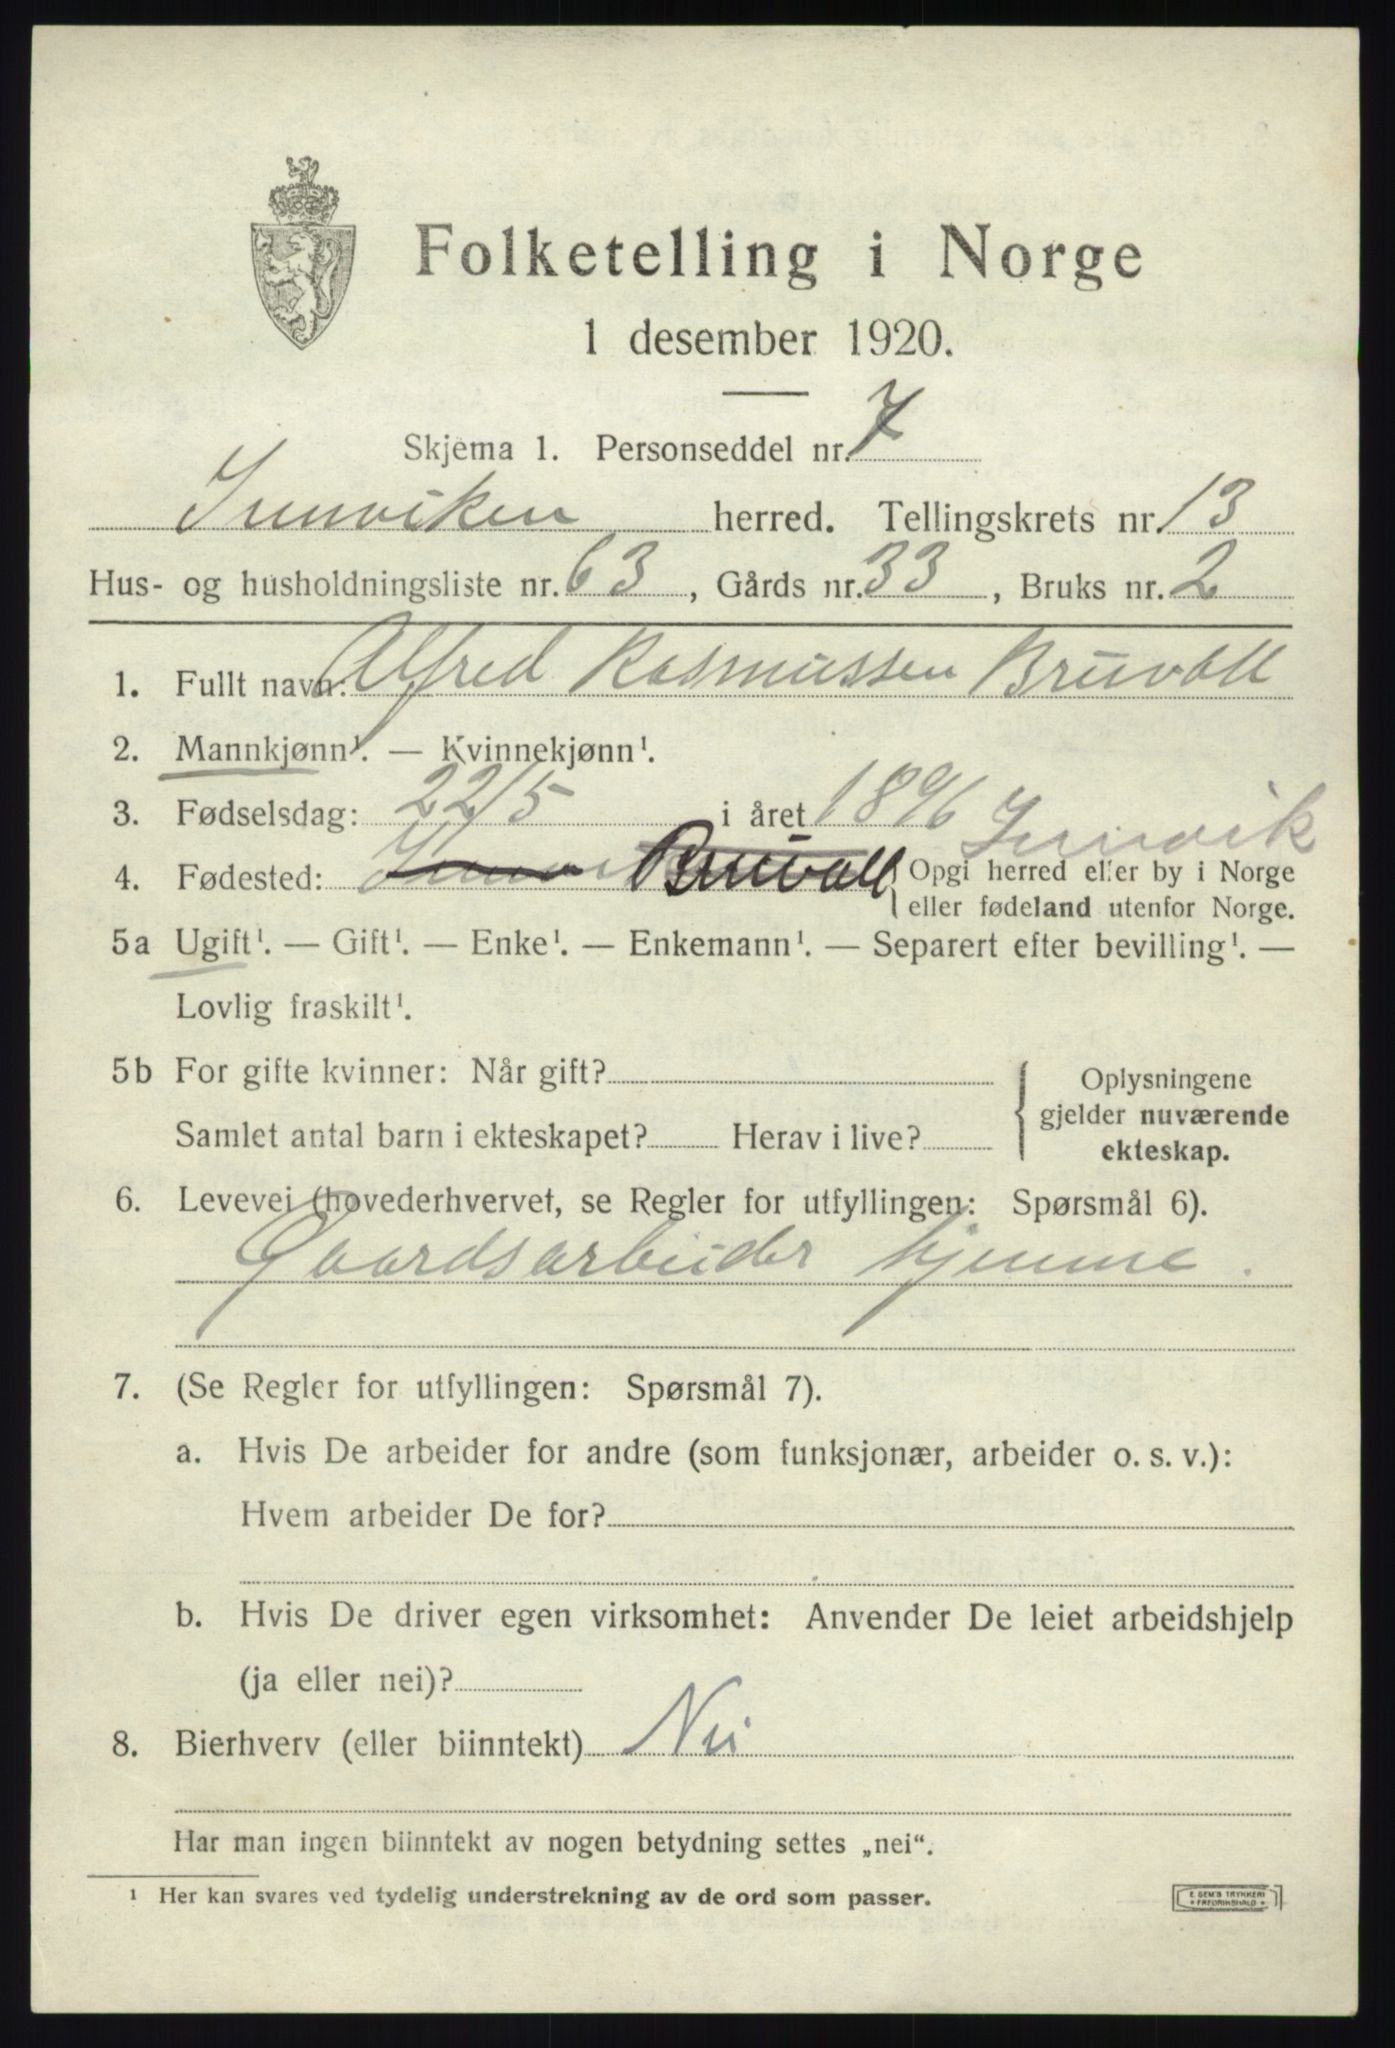 Folketelling i Norge
1 desember 1920.
Skjema 1. Personseddel nr. 7
Innviken herred. Tellingskrets nr. 13
Hus- og husholdningsliste nr. 63, Gårds nr. 33, Bruks nr. 2
1. Fullt navn: Alfred Rasmussen Bruvoll
2. Mannkjønn¹. — Kvinnekjønn¹.
3. Fødselsdag: 22/5 i året 1896 Innvik
4. Fødested: Innvik Bruvoll { Opgi herred eller by i Norge
eller fødeland utenfor Norge.
5a Ugift¹. — Gift¹. — Enke¹. — Enkemann¹. — Separert efter bevilling¹. —
Lovlig fraskilt¹.
5b For gifte kvinner: Når gift? { Oplysningene
gjelder nuværende
Samlet antal barn i ekteskapet? Herav i live?
ekteskap.
6. Levevei (hovederhvervet, se Regler for utfyllingen: Spørsmål 6).
Gaardsarbeider hjemme.
7. (Se Regler for utfyllingen: Spørsmål 7).
a. Hvis De arbeider for andre (som funksjonær, arbeider o. s. v.):
Hvem arbeider De for?
b. Hvis De driver egen virksomhet: Anvender De leiet arbeidshjelp
(ja eller nei)?
8. Bierhverv (eller biinntekt) Nei
Har man ingen biinntekt av nogen betydning settes „nei“.
¹ Her kan svares ved tydelig understrekning av de ord som passer.
E. SEM'S TRYKKERI
FREDRIKSHALD